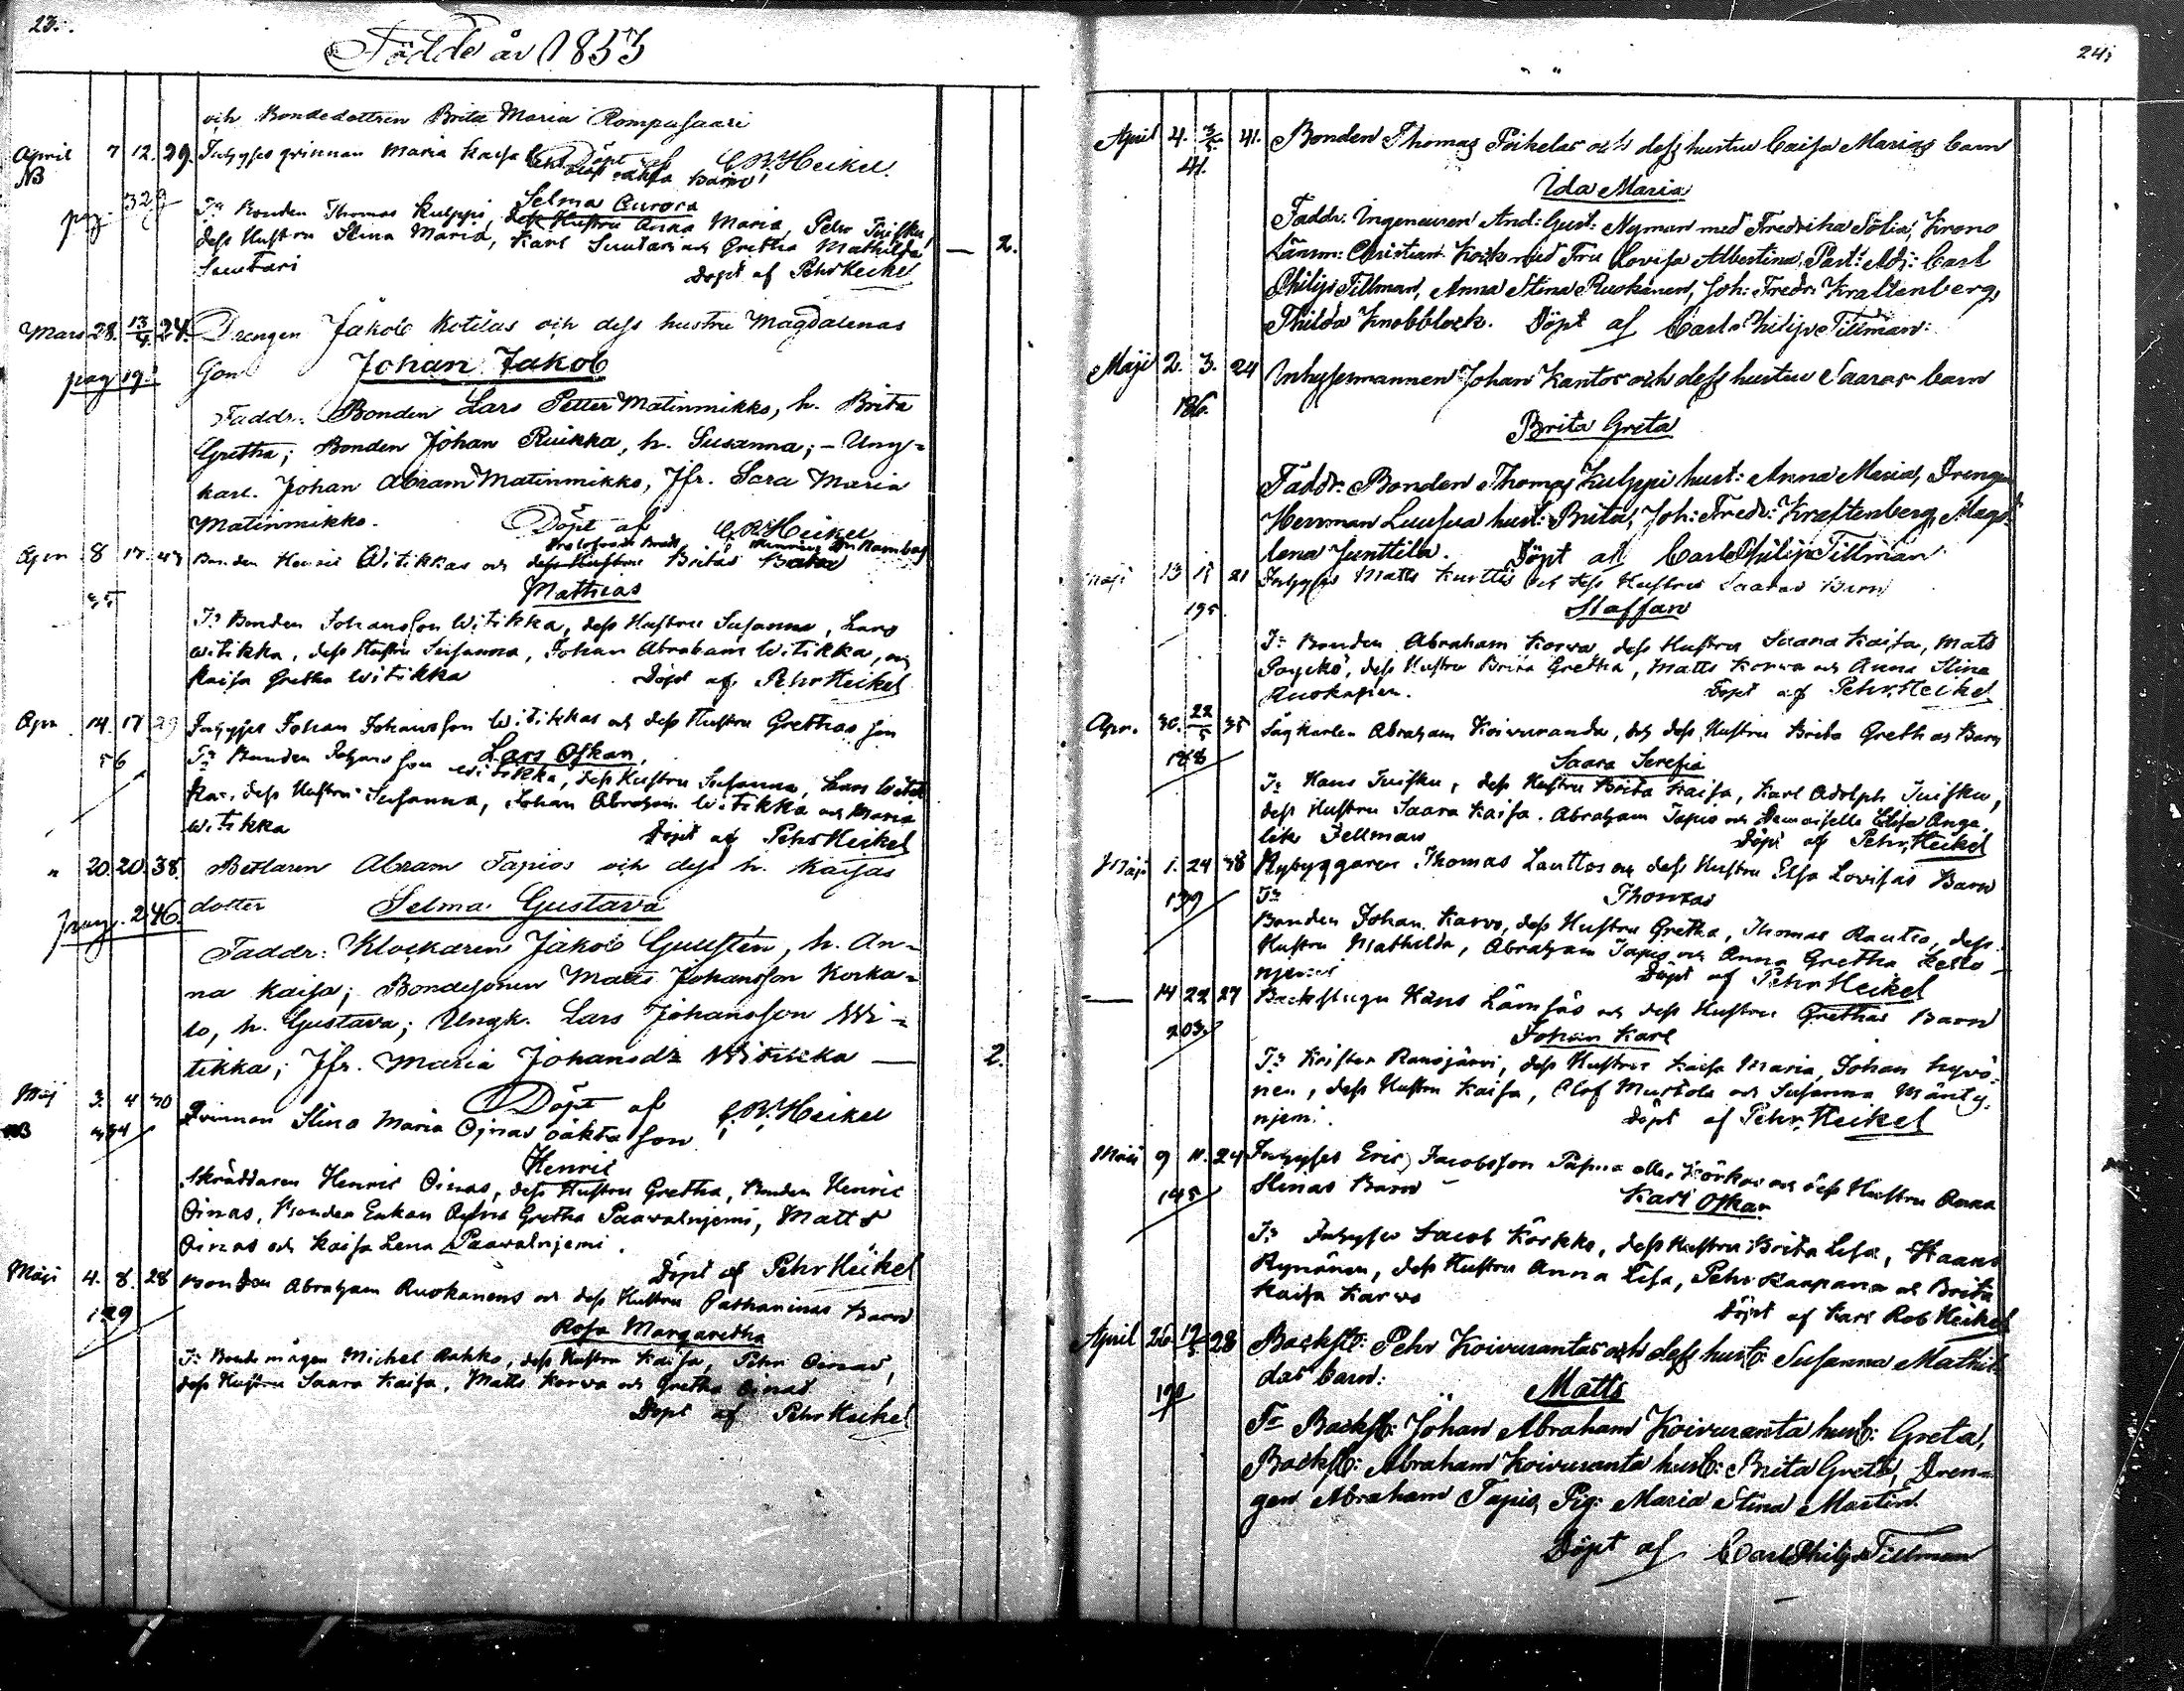 23.
Födde år 1853
och Bondedottren Brita Maria Rompasaari
Döpt af C. R. Heikel.
April 7 12. 29. Inhyses qvinnan Maria Kaisa oäkta Barn
NB
pag. 329 Selma Aurora
Tr Bonden Thomas Kulppi, dess Hustru Anna Maria, Pehr Juisku,
dess Hustru Stina Maria, Karl Suutari och Gretha Mathilda — 2.
Suutari Döpt af Pehr Heikel
Mars 28. 13/4. 24. Drengen Jakob Kotilas och dess hustru Magdalenas
pag 19. Son Johan Jakob
Faddr. Bonden Lars Petter Matinmikko, h. Brita
Gretha; Bonden Johan Ruikka, h. Susanna; – Ung-
karl. Johan Abram Matinmikko, Jfr. Sara Maria
Matinmikko. Döpt af C. R. Heikel
Apr 8 17. 43 Bonden Henric Witikkas och dess Hustru Britas Barn
35 Mathias
Tr Bonden Johansson Witikka, dess Hustru Susanna, Lars
Witikka, dess Hustru Susanna, Johan Abraham Witikka, och
Kaisa Gretha Witikka Döpt af Pehr Heikel
Apr 14. 17 29 Inhyses Johan Johansson Witikkas och dess Hustru Grethas Son
56 Lars Oskar
Tr Bonden Johansson Witikka, dess Hustru Susanna, Lars Witik
ka, dess Hustru Susanna, Johan Abraham Witikka och Maria
Witikka Döpt af Pehr Heikel
" 20. 20. 38. Betlaren Abram Tapios och dess h. Kaisas
pag. 246. dotter Selma Gustava
Faddr: Klockaren Jakob Guusten, h. An-
na Kaisa; Bondesonen Matts Johansson Korka-
lo, h. Gustava; Ungk. Lars Johansson Wi-
tikka; Jfr. Maria Johansdr Witikka — 2.
Döpt af C. R. Heikel
Maj 3. 4 30 Qvinnan Stina Maria Oinas oäkta son
NB Henric
Skräddaren Henric Oinas, dess Hustru Gretha, Bonden Henric
Oinas, Bonden Enkan Anna Gretha Paavalnjemi, Matts
Oinas och Kaisa Lena Paavalnjemi.
Döpt af Pehr Heikel
Maji 4. 8. 28 Bonden Abraham Ruokanens och dess Hustru Cathaninas Barn
129 Rosa Margaretha
Tr Bonde mågen Michel Rahko, dess Hustru Kaisa, Pehr Oinas,
dess Hustru Saara Kaisa, Matts Korwa och Gretha Oinas
Döpt af Pehr Heikel
24;
" "
April 4. 3/5 41. Bonden Thomas Poikelas och dess hustru Caisa Marias barn
41. Ida Maria
Faddr: Ingeneuren And: Gust: Nyman med Fredrika Sofia, Krono
Länsm: Christian Kock med Fru Lovisa Albertina, Past: Adj: Carl
Philip Tillman, Anna Stina Ruokanen, Joh: Fredr: Kraftenberg,
Thilda Knobblock. Döpt af Carl Philip Tillman.
Maji 2. 3. 24 Inhysesmannen Johan Kantos och dess hustru Saaras barn
186. Brita Greta
Faddr: Bonden Thomas Kulppi hust: Anna Maria, Drengen
Herrman Luusua hust: Brita, Joh: Fredr: Kraftenberg, Magd
lena Junttila. Döpt af Carl Philip Tillman
Maji 13 15 21 Inhyses Matts Kurttis och dess Hustru Saaras Barn
195. Staffan
Tr Bonden Abraham Korwa, dess Hustru Saara Kaisa, Mats
Poycko, dess Hustru Brita Gretha, Matts Korwa och Anna Stina
Ruokanen. Döpt af Pehr Heikel
Apr. 30. 22/5 35 Sågkarlen Abraham Koivuranda, och dess Hustru Brita Grethas Barn
188 Saara Serefia
Tr Hans Juisku, dess Hustru Brita Kaisa, Karl Adolph Juisku,
dess Hustru Saara Kaisa. Abraham Tapio och Demoiselle Elisa Ange
lik Fellman Döpt af Pehr Heikel
Maji 1. 24 38 Nybyggaren Thomas Lauttos och dess Hustru Elsa Lovisas Barn
139 Tr Thomas
Bonden Johan Karvo, dess Hustru Gretha, Thomas Rautio, dess
Hustru Mathilda, Abraham Tapio och Anna Gretha Kello-
njemi Döpt af Pehr Heikel
— 14 22 27 Backstugu Hans Lämsäs och dess Hustru Grethas Barn
203 Johan Karl
Tr Krister Ransjärvi, dess Hustru Kaisa Maria, Johan Hyvö-
nen, dess Hustru Kaisa, Olof Mustola och Susanna Mänty-
njemi. Döpt af Pehr Heikel
Maji 9 11. 24 Inhyses Eric Jacobsson eller Körkos och dess Hustru Anna
145 Stinas Barn Karl Oskar
Tr Inhyses Jacob Körkko, dess Hustru Brita Lisa, Haans
Rynänen, dess Hustru Anna Lisa, Pehr Kaapana och Brita
Kaisa Karvo Döpt af Karl Rob Heikel
April 26 19/5 28 Backst: Pehr Koivurantas och dess hust: Susanna Mathil
das barn: Matts
Tr Backst: Johan Abraham Koivuranta hust: Greta,
Backst: Abraham Koivuranta hust: Brita Greta, Dren-
gen Abraham Tapio, Pig: Maria Stina Martin.
Döpt af Carl Philip Tillman